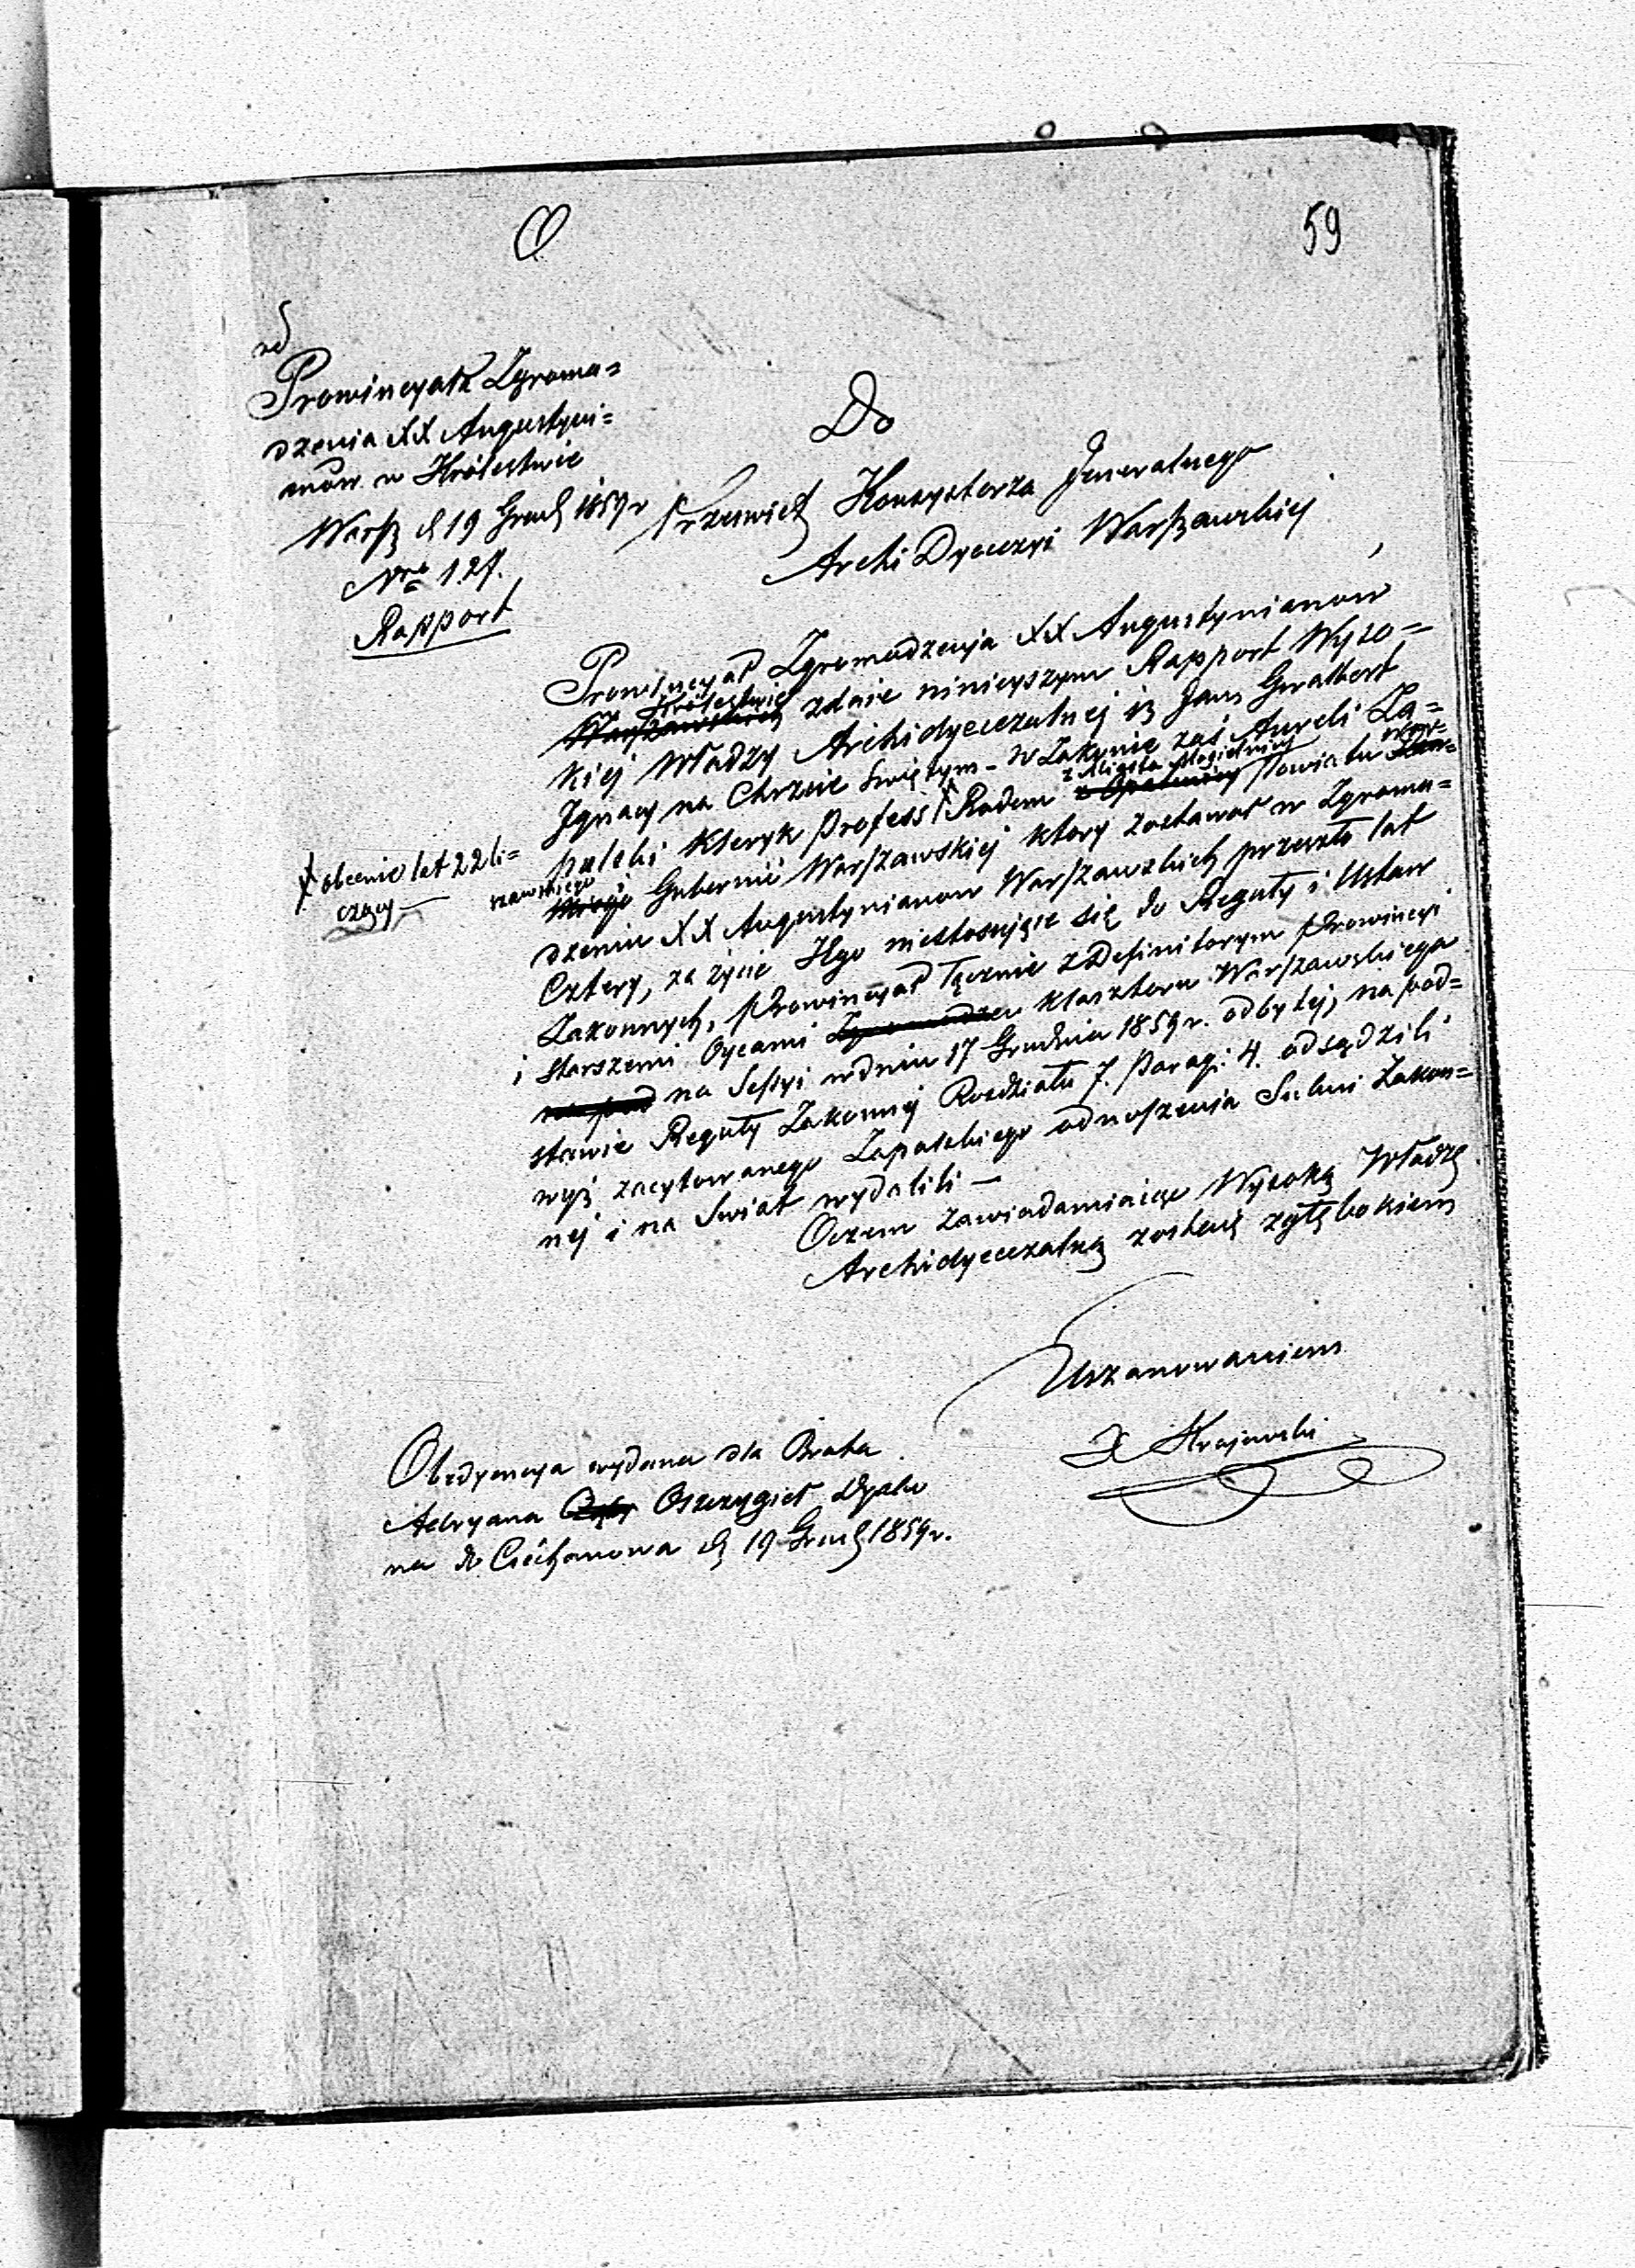 59
Prowincyał Zgroma=
dzenia XX Augustyni=
anów w Królestwie
Warsz d 19 Grud 1859 r
Nro 127.
Rapport
Do
Przeświet Konsystorza Jeneralnego
Archi Dyecezyi Warszawskiej
Prowincyał Zgromadzenia XX Augustynianow
Królestwie
Warszawskich zdaie ninieyszym Rapport Wyso=
kiej Władzy Archidyecezalnej iż Jan Gwalbert
Ignacy na Chrzcie Świętym - w Zakonie zaś Aureli Za=
z Miasta Mogielnicy War=
palski Kleryk Profess Rodem z Powiatu
obecnie lat 22 li=
czący —
szawskiego
Gubernii Warszawskiej ktory zostawał w Zgroma=
dzeniu XX Augustynianow Warszawskich przeszło lat
Cztery, za życie Złe niestosujące się do Reguły i Ustaw
Zakonnych, Prowincyał łącznie z Definitorym Prowincyi
i Starszemi Oycami Klasztoru Warszawskiego
na Sessyi w dniu 17 Grudnia 1859 r. odbytej, na pod=
stawie Reguły Zakonnej Rozdziału 7. Parag: 4. odsądzili
wyż zacytowanego Zapalskiego od noszenia Sukni Zakon=
nej i na Świat wydalili —
Oczem zawiadamiaiąc Wysoką Władzę
Archidyecezalną zostaię z głębokiem
Uszanowaniem
X Krajewski
Obedyencya wydana dla Brata
Adryana Oszczygieł Dyako
na do Ciechanowa d 19 Grud 1859 r.